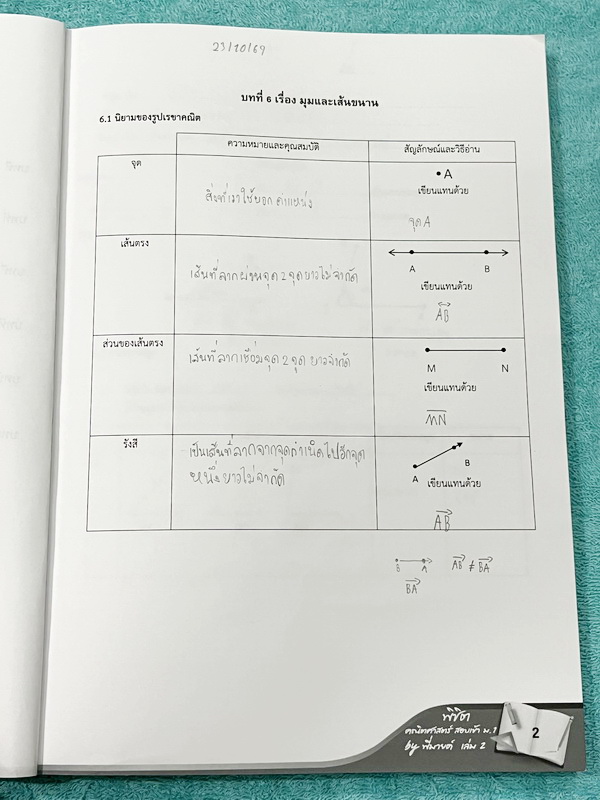 23/10/69
บทที่ 6 เรื่อง มุมและเส้นขนาน
6.1 นิยามของรูปเรขาคณิต
ความหมายและคุณสมบัติ
สัญลักษณ์และวิธีอ่าน
จุด
สิ่งที่เราใช้บอก ตำแหน่ง
A
เขียนแทนด้วย
จุด A
เส้นตรง
เส้นที่ลากผ่านจุด 2 จุดยาวไม่จำกัด
A B
เขียนแทนด้วย
AB
ส่วนของเส้นตรง
เส้นที่ลากเชื่อมจุด 2 จุด ยาวจำกัด
M N
เขียนแทนด้วย
MN
รังสี
เป็นเส้นที่ลากจากจุดกำเนิดไปอีกจุด
หนึ่งยาวไม่จำกัด
A B
เขียนแทนด้วย
AB
B A AB ≠ BA
BA
พิชิต
คณิตศาสตร์ สอบเข้า ม.1
by พี่มายด์ เล่ม 2
2